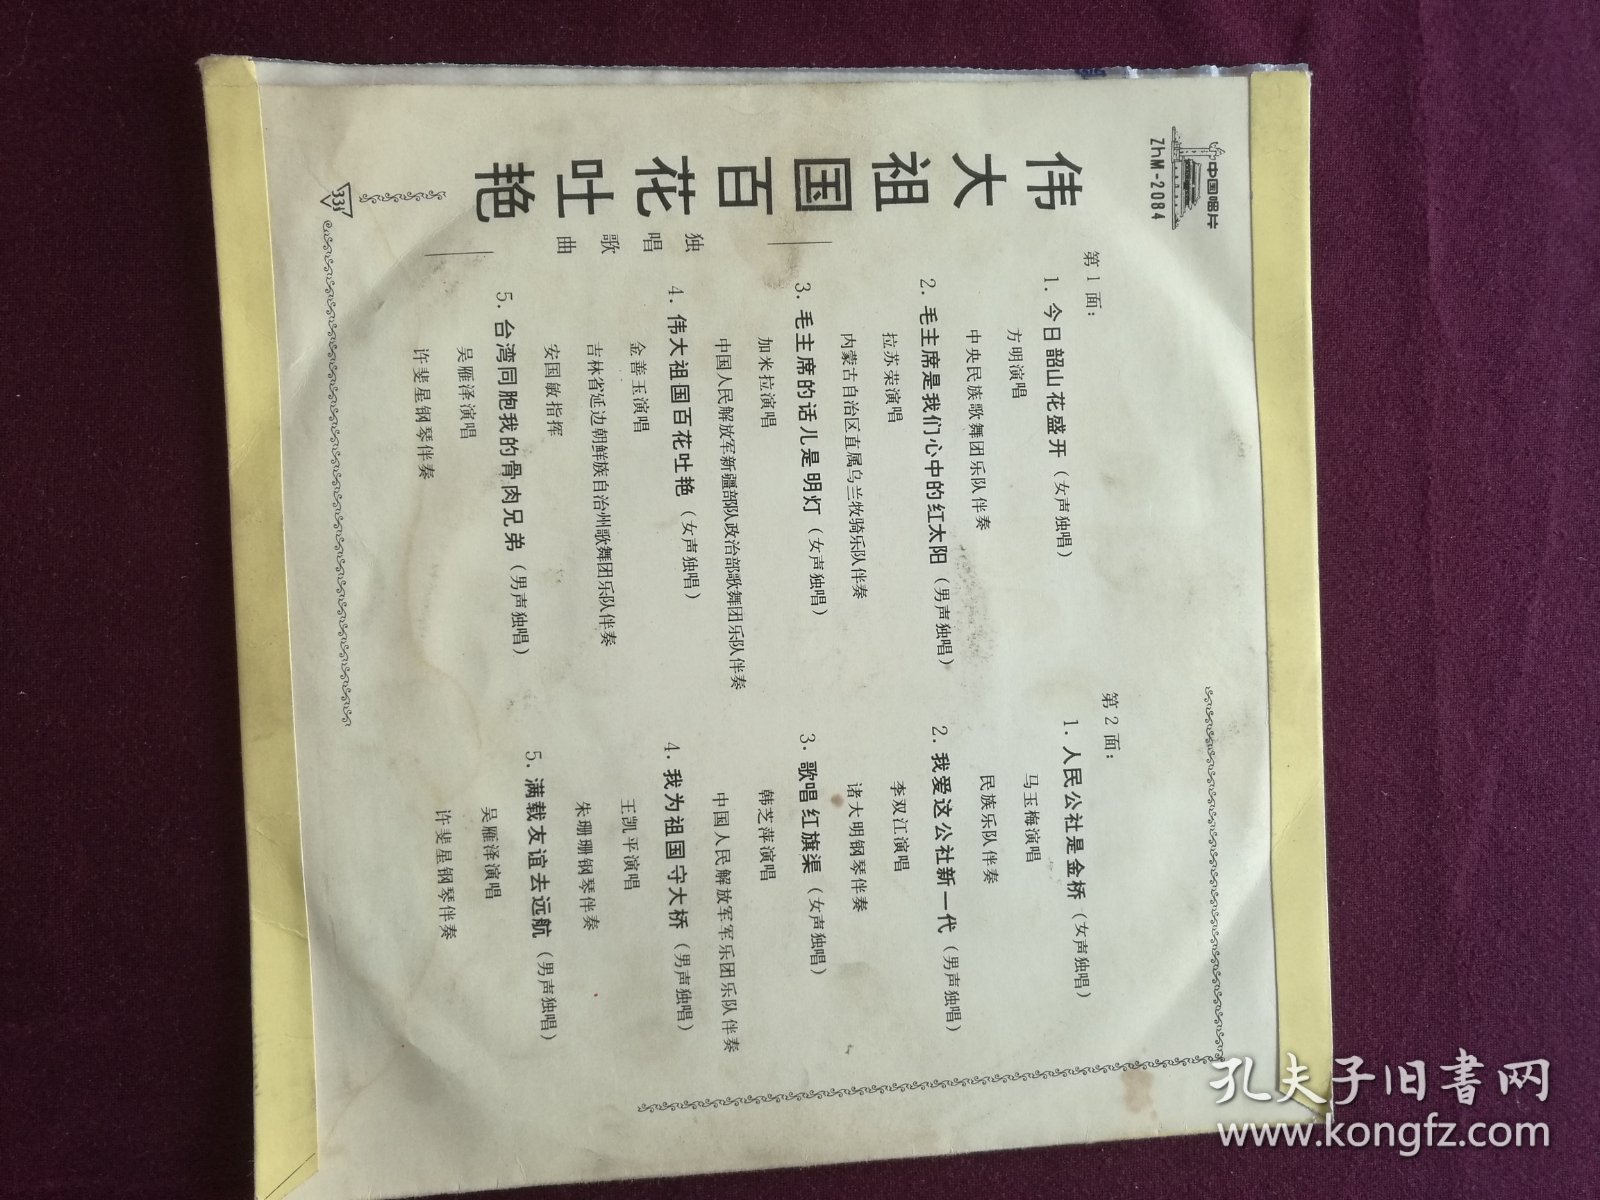 中国唱片
ZhM-2084
伟大祖国百花吐艳
独唱歌曲
33⅓
第1面：
1. 今日韶山花盛开（女声独唱）
方明演唱
中央民族歌舞团乐队伴奏
2. 毛主席是我们心中的红太阳（男声独唱）
拉苏荣演唱
内蒙古自治区直属乌兰牧骑乐队伴奏
3. 毛主席的话儿是明灯（女声独唱）
加米拉演唱
中国人民解放军新疆部队政治部歌舞团乐队伴奏
4. 伟大祖国百花吐艳（女声独唱）
金善玉演唱
吉林省延边朝鲜族自治州歌舞团乐队伴奏
安国敏指挥
5. 台湾同胞我的骨肉兄弟（男声独唱）
吴雁泽演唱
许斐星钢琴伴奏
第2面：
1. 人民公社是金桥（女声独唱）
马玉梅演唱
民族乐队伴奏
2. 我爱这公社新一代（男声独唱）
李双江演唱
诸大明钢琴伴奏
3. 歌唱红旗渠（女声独唱）
韩芝萍演唱
中国人民解放军军乐团乐队伴奏
4. 我为祖国守大桥（男声独唱）
王凯平演唱
朱珊珊钢琴伴奏
5. 满载友谊去远航（男声独唱）
吴雁泽演唱
许斐星钢琴伴奏
孔夫子旧书网
www.kongfz.com